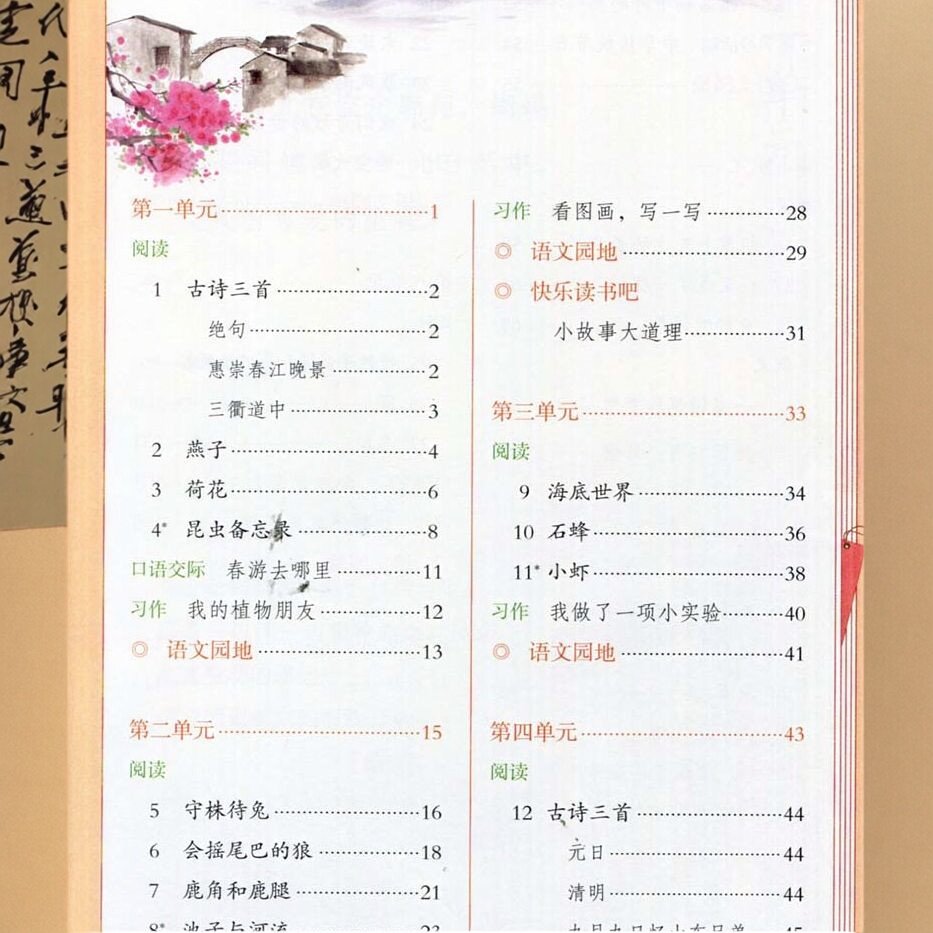 第一单元 1
阅读
1 古诗三首 2
绝句 2
惠崇春江晚景 2
三衢道中 3
2 燕子 4
3 荷花 6
4* 昆虫备忘录 8
口语交际 春游去哪里 11
习作 我的植物朋友 12
◎ 语文园地 13
第二单元 15
阅读
5 守株待兔 16
6 会摇尾巴的狼 18
7 鹿角和鹿腿 21
8* 池子与河流 23
习作 看图画，写一写 28
◎ 语文园地 29
◎ 快乐读书吧
小故事大道理 31
第三单元 33
阅读
9 海底世界 34
10 石蜂 36
11* 小虾 38
习作 我做了一项小实验 40
◎ 语文园地 41
第四单元 43
阅读
12 古诗三首 44
元日 44
清明 44
九月九日忆山东兄弟 45